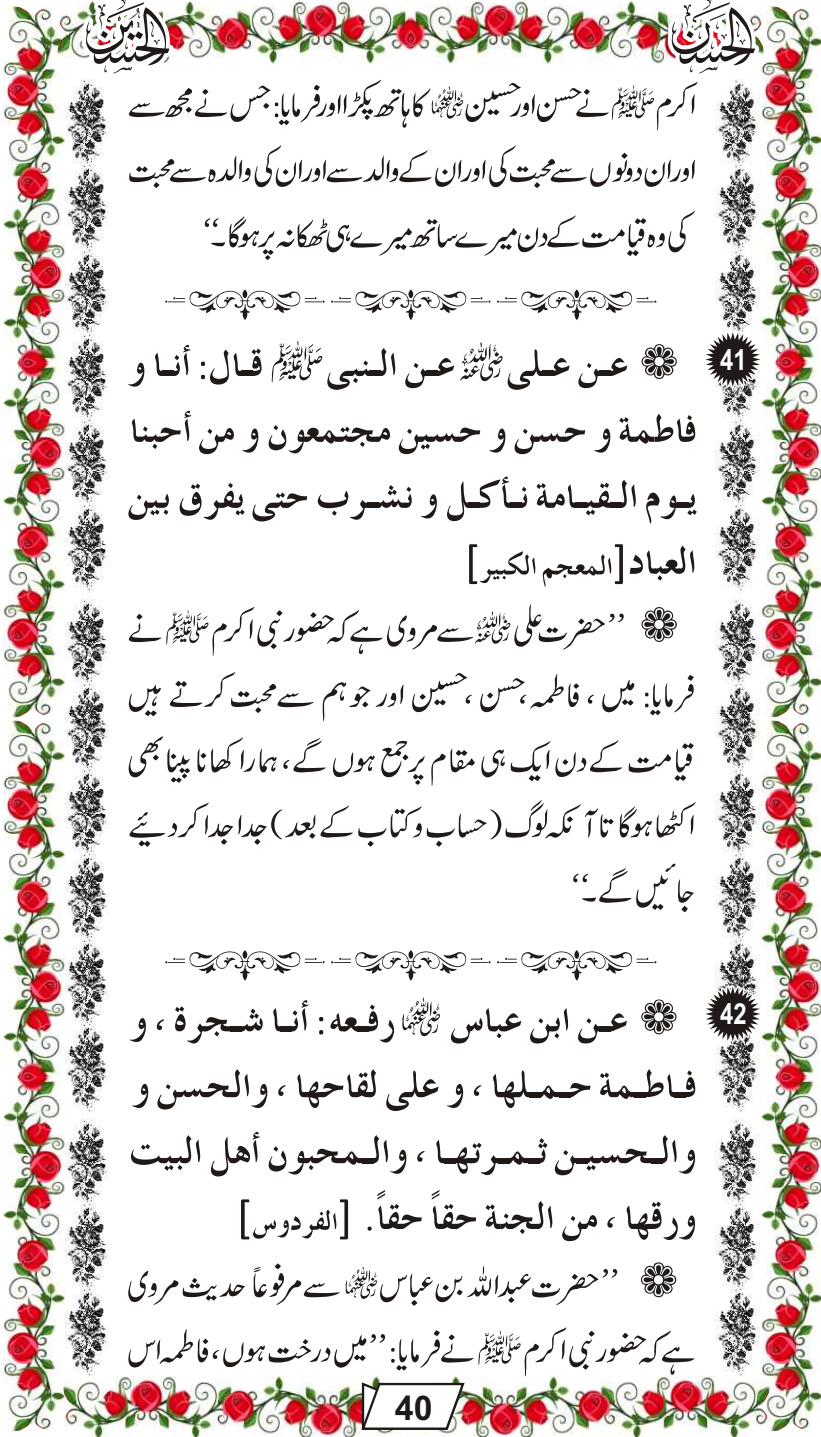 الحسنین الحسنین
اکرم ﷺ نے حسن اور حسین رضی اللہ عنہما کا ہاتھ پکڑا اور فرمایا: جس نے مجھ سے
اور ان دونوں سے محبت کی اور ان کے والد سے اور ان کی والدہ سے محبت
کی وہ قیامت کے دن میرے ساتھ میرے ہی ٹھکانہ پر ہوگا۔‘‘
41 عن علی رضی اللہ عنہ عن النبی ﷺ قال: أنا و
فاطمة و حسن و حسین مجتمعون و من أحبنا
یوم القیامة نأکل و نشرب حتی یفرق بین
العباد [المعجم الکبیر]
’’حضرت علی رضی اللہ عنہ سے مروی ہے کہ حضور نبی اکرم ﷺ نے
فرمایا: میں ، فاطمہ ،حسن ،حسین اور جو ہم سے محبت کرتے ہیں
قیامت کے دن ایک ہی مقام پر جمع ہوں گے ، ہمارا کھانا پینا بھی
اکٹھا ہوگا تا آنکہ لوگ (حساب و کتاب کے بعد ) جدا جدا کر دیئے
جائیں گے۔‘‘
42 عن ابن عباس رضی اللہ عنہما رفعه: أنا شجرة ، و
فاطمة حملها ، و علی لقاحها ، والحسن و
والحسین ثمرتها ، والمحبون أهل البیت
ورقها ، من الجنة حقاً حقاً. [الفردوس]
’’حضرت عبداللہ بن عباس رضی اللہ عنہما سے مرفوعاً حدیث مروی
ہے کہ حضور نبی اکرم ﷺ نے فرمایا: ’’میں درخت ہوں ، فاطمہ اس
40